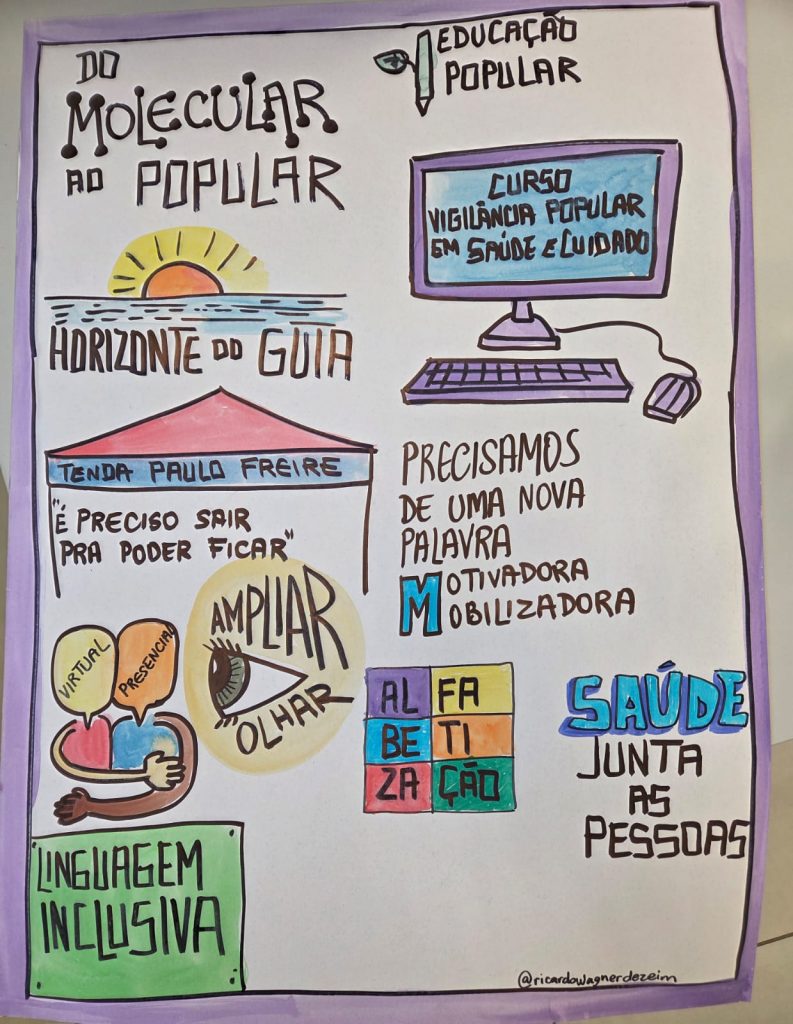 DO
MOLECULAR
AO POPULAR
EDUCAÇÃO
POPULAR
CURSO
VIGILÂNCIA POPULAR
EM SAÚDE E CUIDADO
HORIZONTE DO GUIA
TENDA PAULO FREIRE
"É PRECISO SAIR
PRA PODER FICAR"
PRECISAMOS
DE UMA NOVA
PALAVRA
MOTIVADORA
MOBILIZADORA
VIRTUAL
PRESENCIAL
AMPLIAR
OLHAR
AL FA
BE TI
ZA ÇÃO
SAÚDE
JUNTA
AS
PESSOAS
LINGUAGEM
INCLUSIVA
@ricardowagnerdezeim